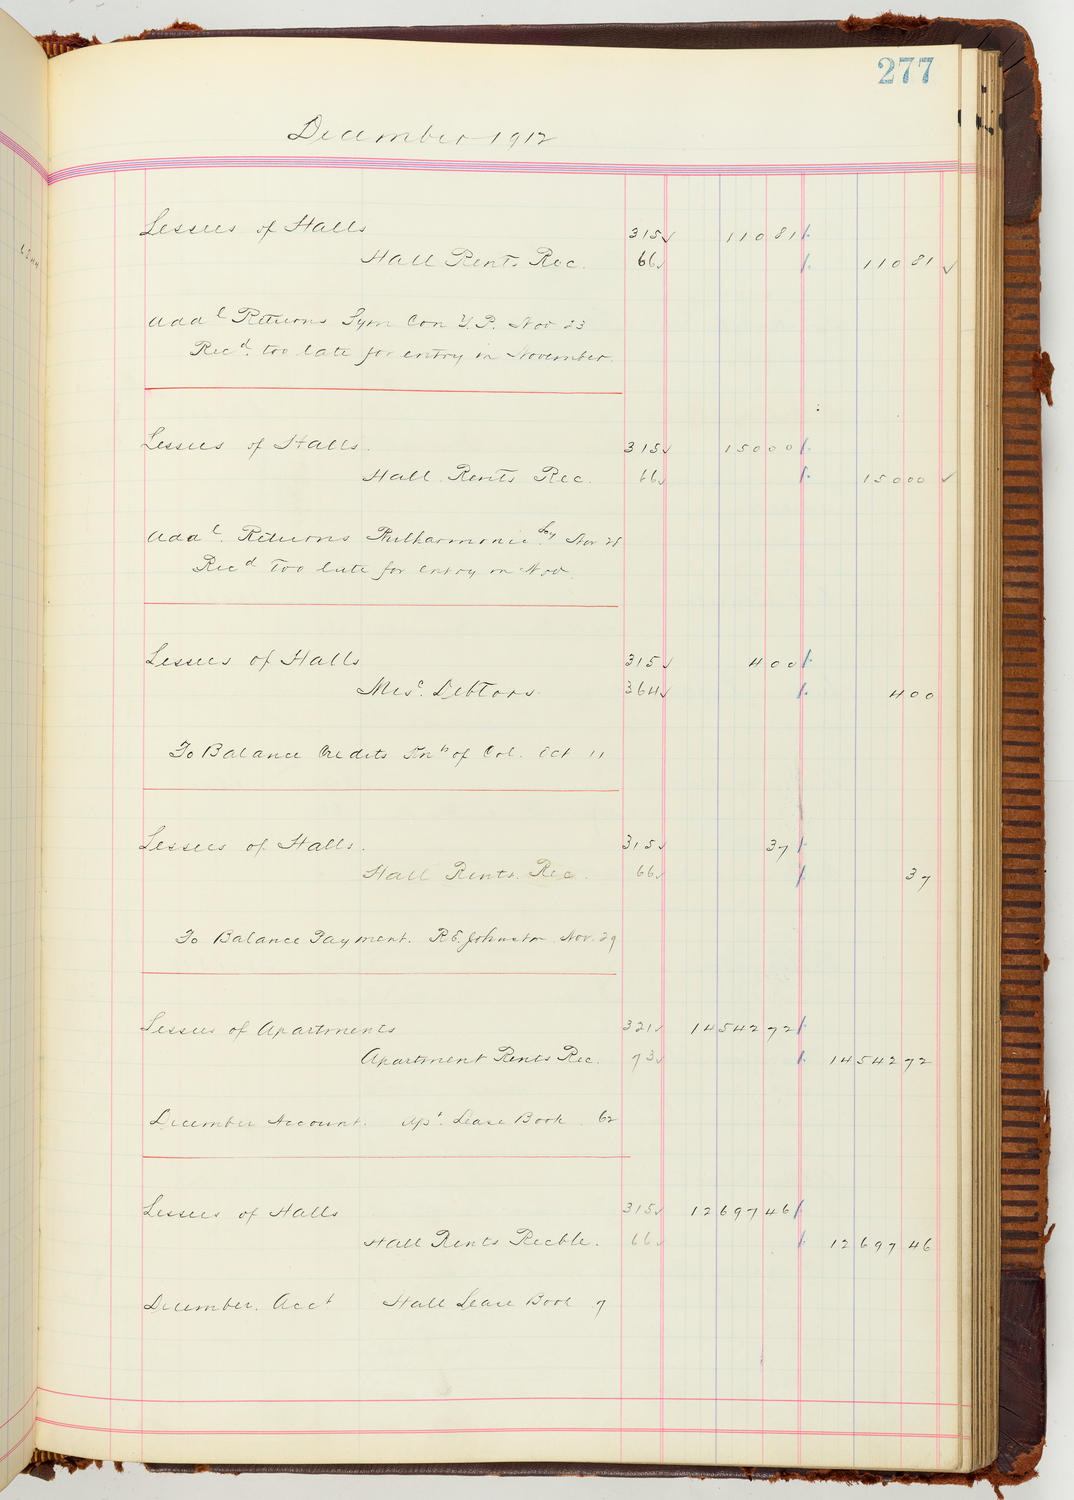 277
December 1912
Lessees of Halls 315✓ 110 81
Hall Rents Rec. 66✓ 110 81 ✓
Add'l Returns Sym Con Y.P. Nov 23
Rec'd. too late for entry in November.
Lessees of Halls. 315✓ 150 00
Hall Rents Rec. 66✓ 150 00 ✓
Add'l. Returns Philharmonic Soy Nov 28
Rec'd Too late for entry in Nov.
Lessees of Halls 315✓ 4 00
Misc. Debtors. 364✓ 4 00
To Balance Credits of Col. Oct 11
Lessees of Halls. 315✓ 37
Hall Rents. Rec. 66✓ 37
To Balance Payment. R.E. Johnston Nov. 29
Lessees of Apartments 321✓ 14542 72
Apartment Rents Rec. 73✓ 14542 72
December Account. Apt. Lease Book 62
Lessees of Halls 315✓ 12697 46
Hall Rents Recble. 66✓ 12697 46
December. Acct Hall Lease Book 7